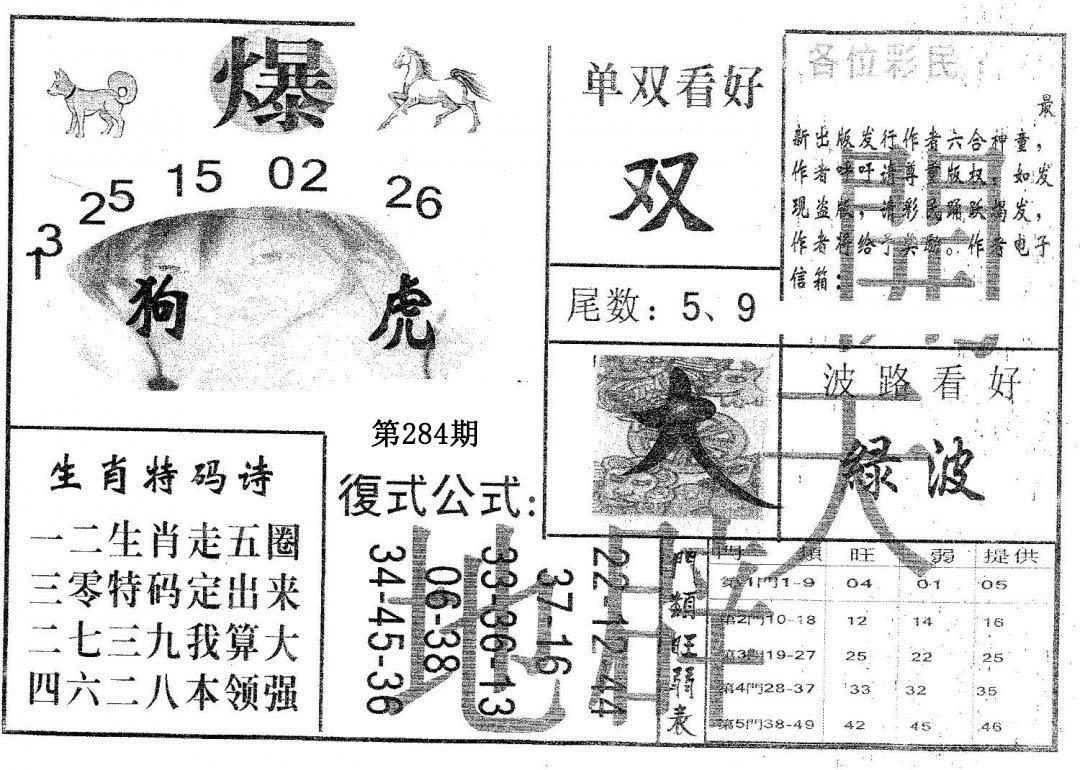 爆
13
25
15
02
26
狗
虎
单双看好
双
尾数：5、9
大
各位彩民：
最
新出版发行作者六合神童，
作者呼吁请尊重版权，如发
现盗版，请彩民踊跃揭发，
作者将给予奖励。作者电子
信箱：
波路看好
绿波
第284期
生肖特码诗
一二生肖走五圈
三零特码定出来
二七三九我算大
四六二八本领强
復式公式：
34-45-36
06-38
33-36-13
37-16
22-12-44
門類旺弱表
門 類 旺 弱 提供
第1門1-9 04 01 05
第2門10-18 12 14 16
第3門19-27 25 22 25
第4門28-37 33 32 35
第5門38-49 42 45 46